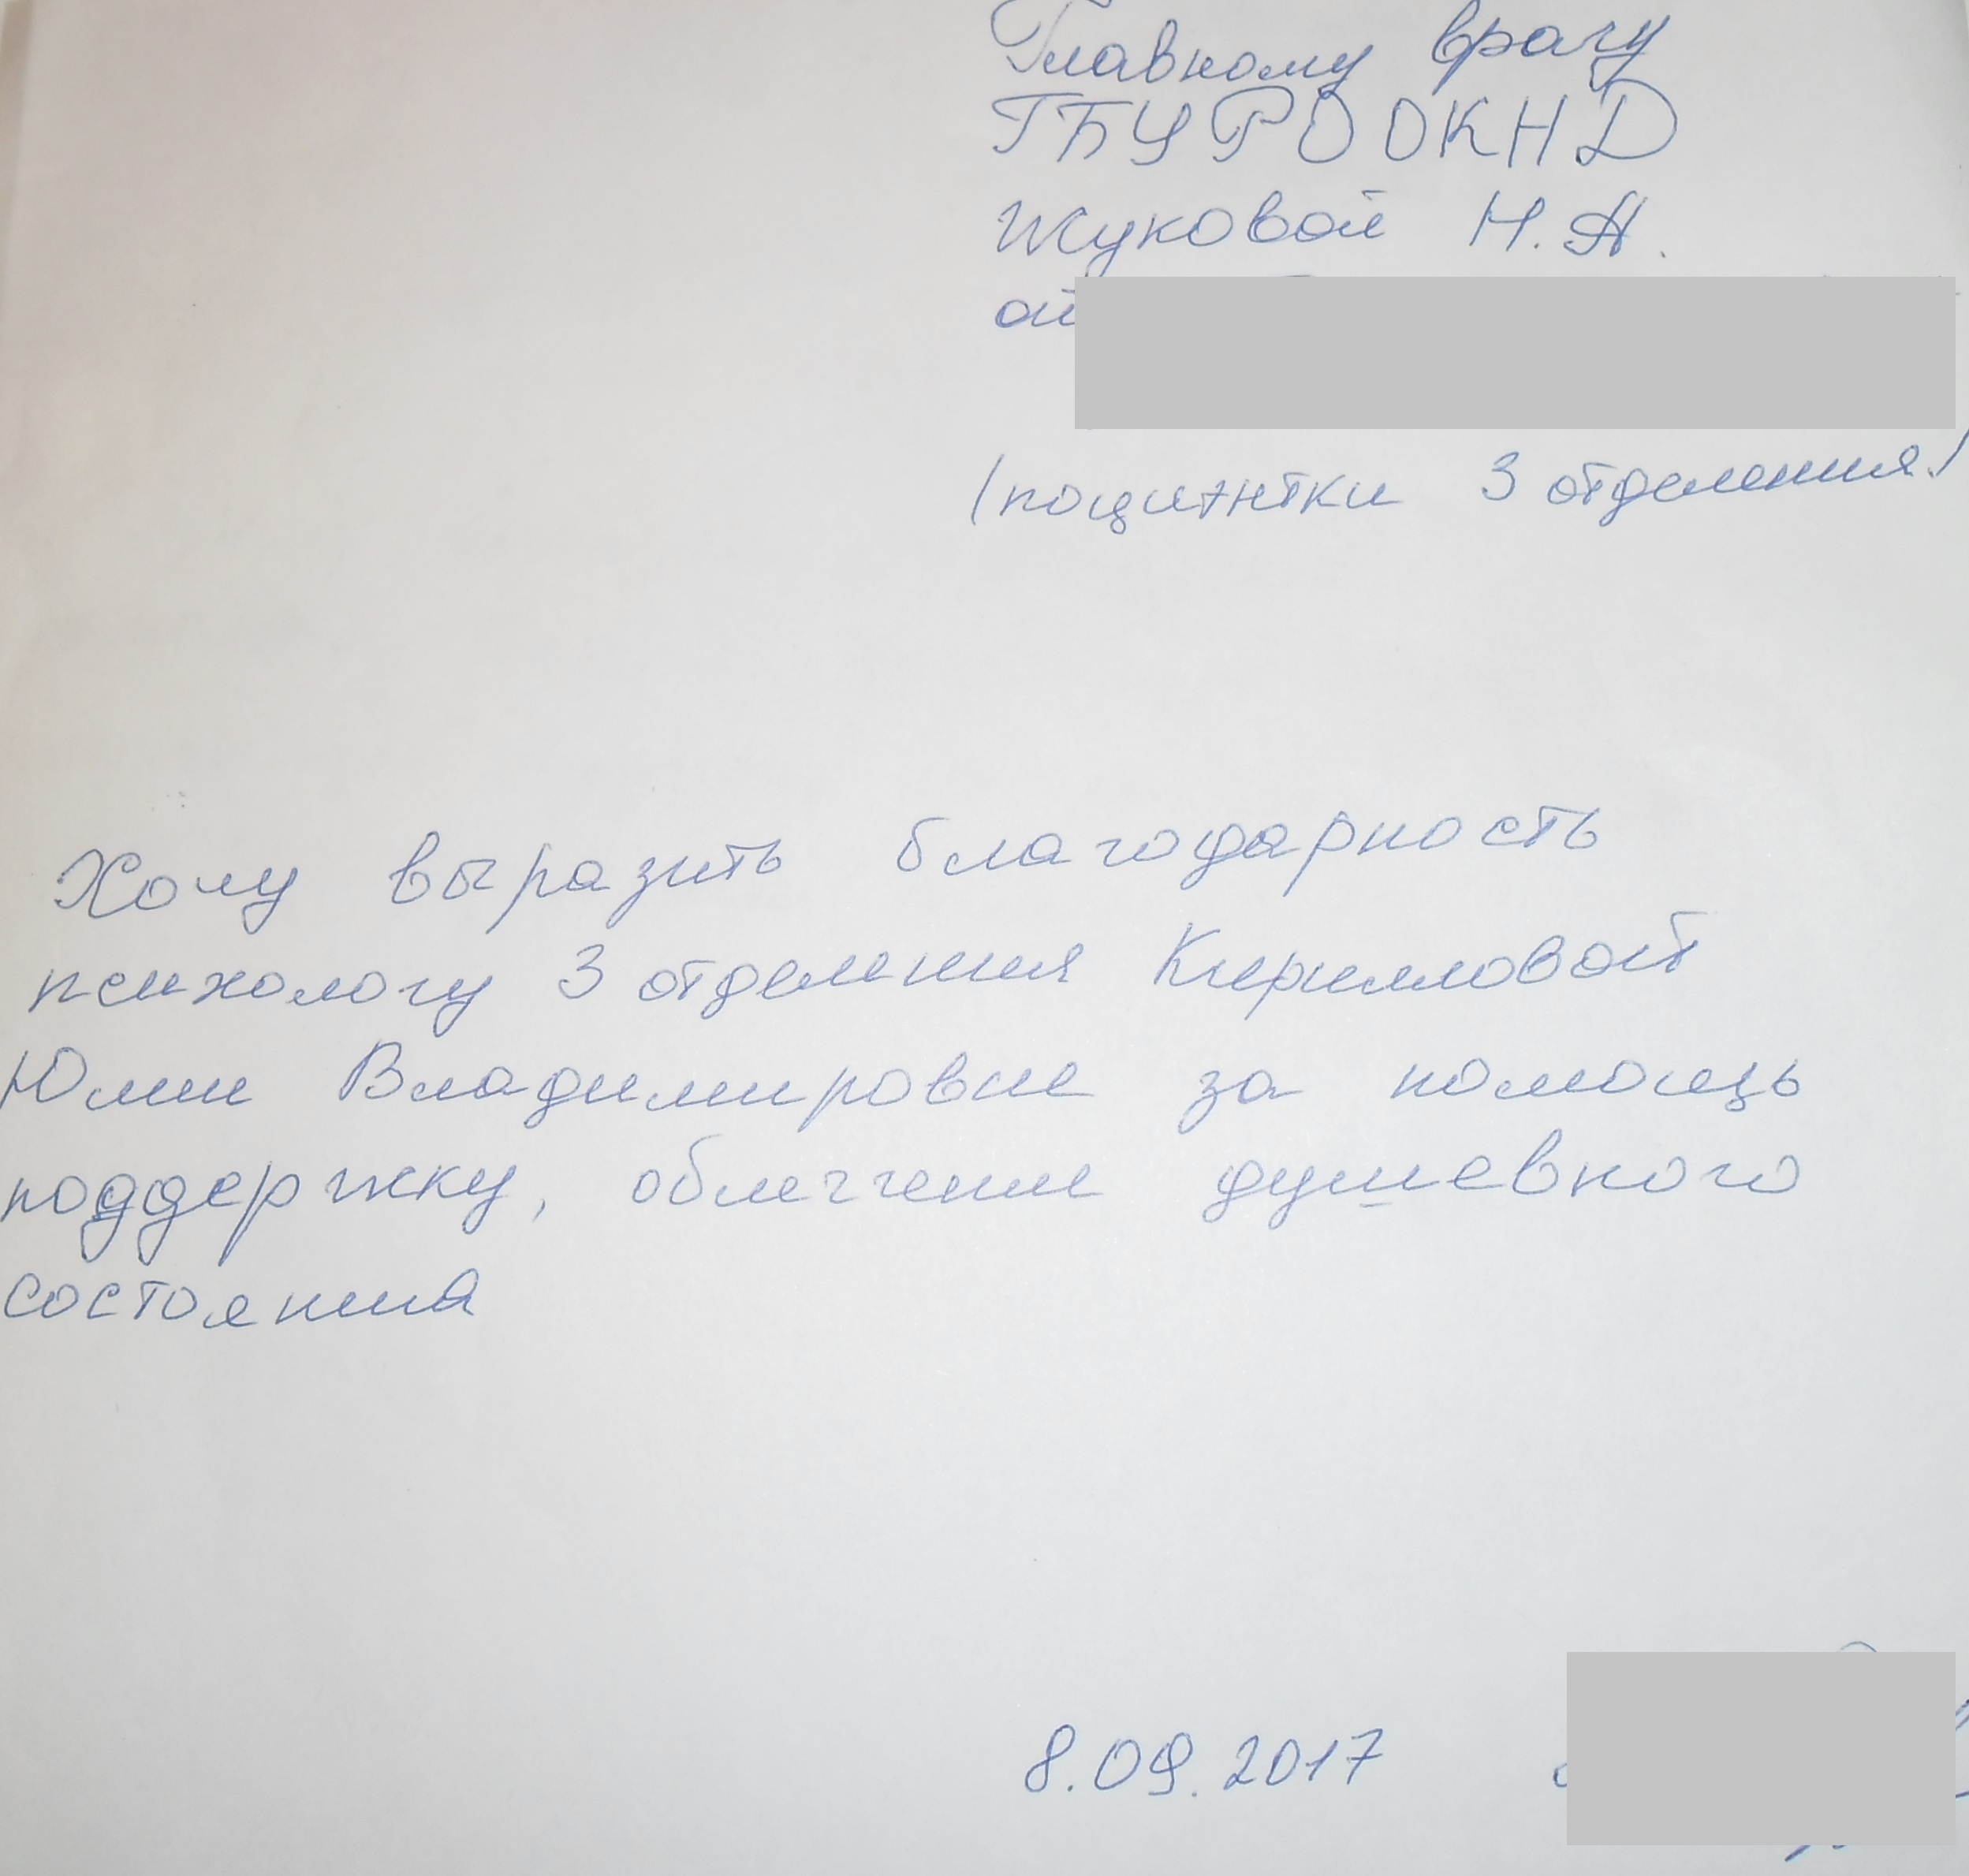 Главному врачу
ГБУ РО ОКНД
Жуковой Н. А.
от
(поциэнтки 3 отделения)
Хочу выразить благодарность
психологу 3 отделения Кирилловой
Юлии Владимировне за помощь
поддержку, облегчение душевного
состояния
8.09.2017